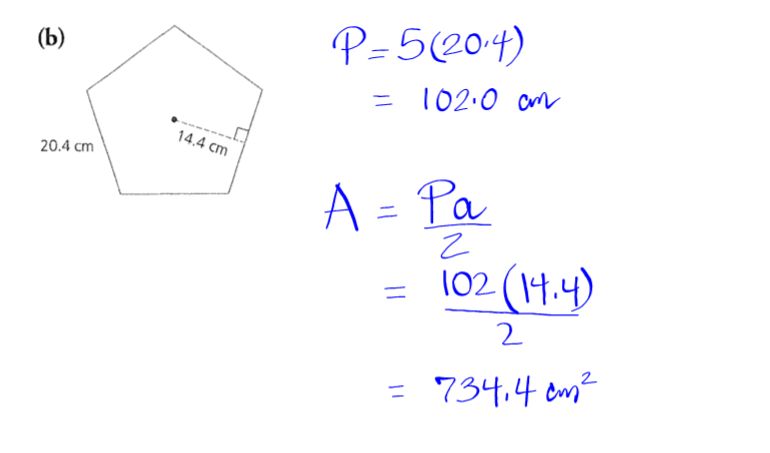 (b)
20.4 cm
14.4 cm
P = 5(20.4)
= 102.0 cm
A = Pa
2
= 102(14.4)
2
= 734.4 cm²